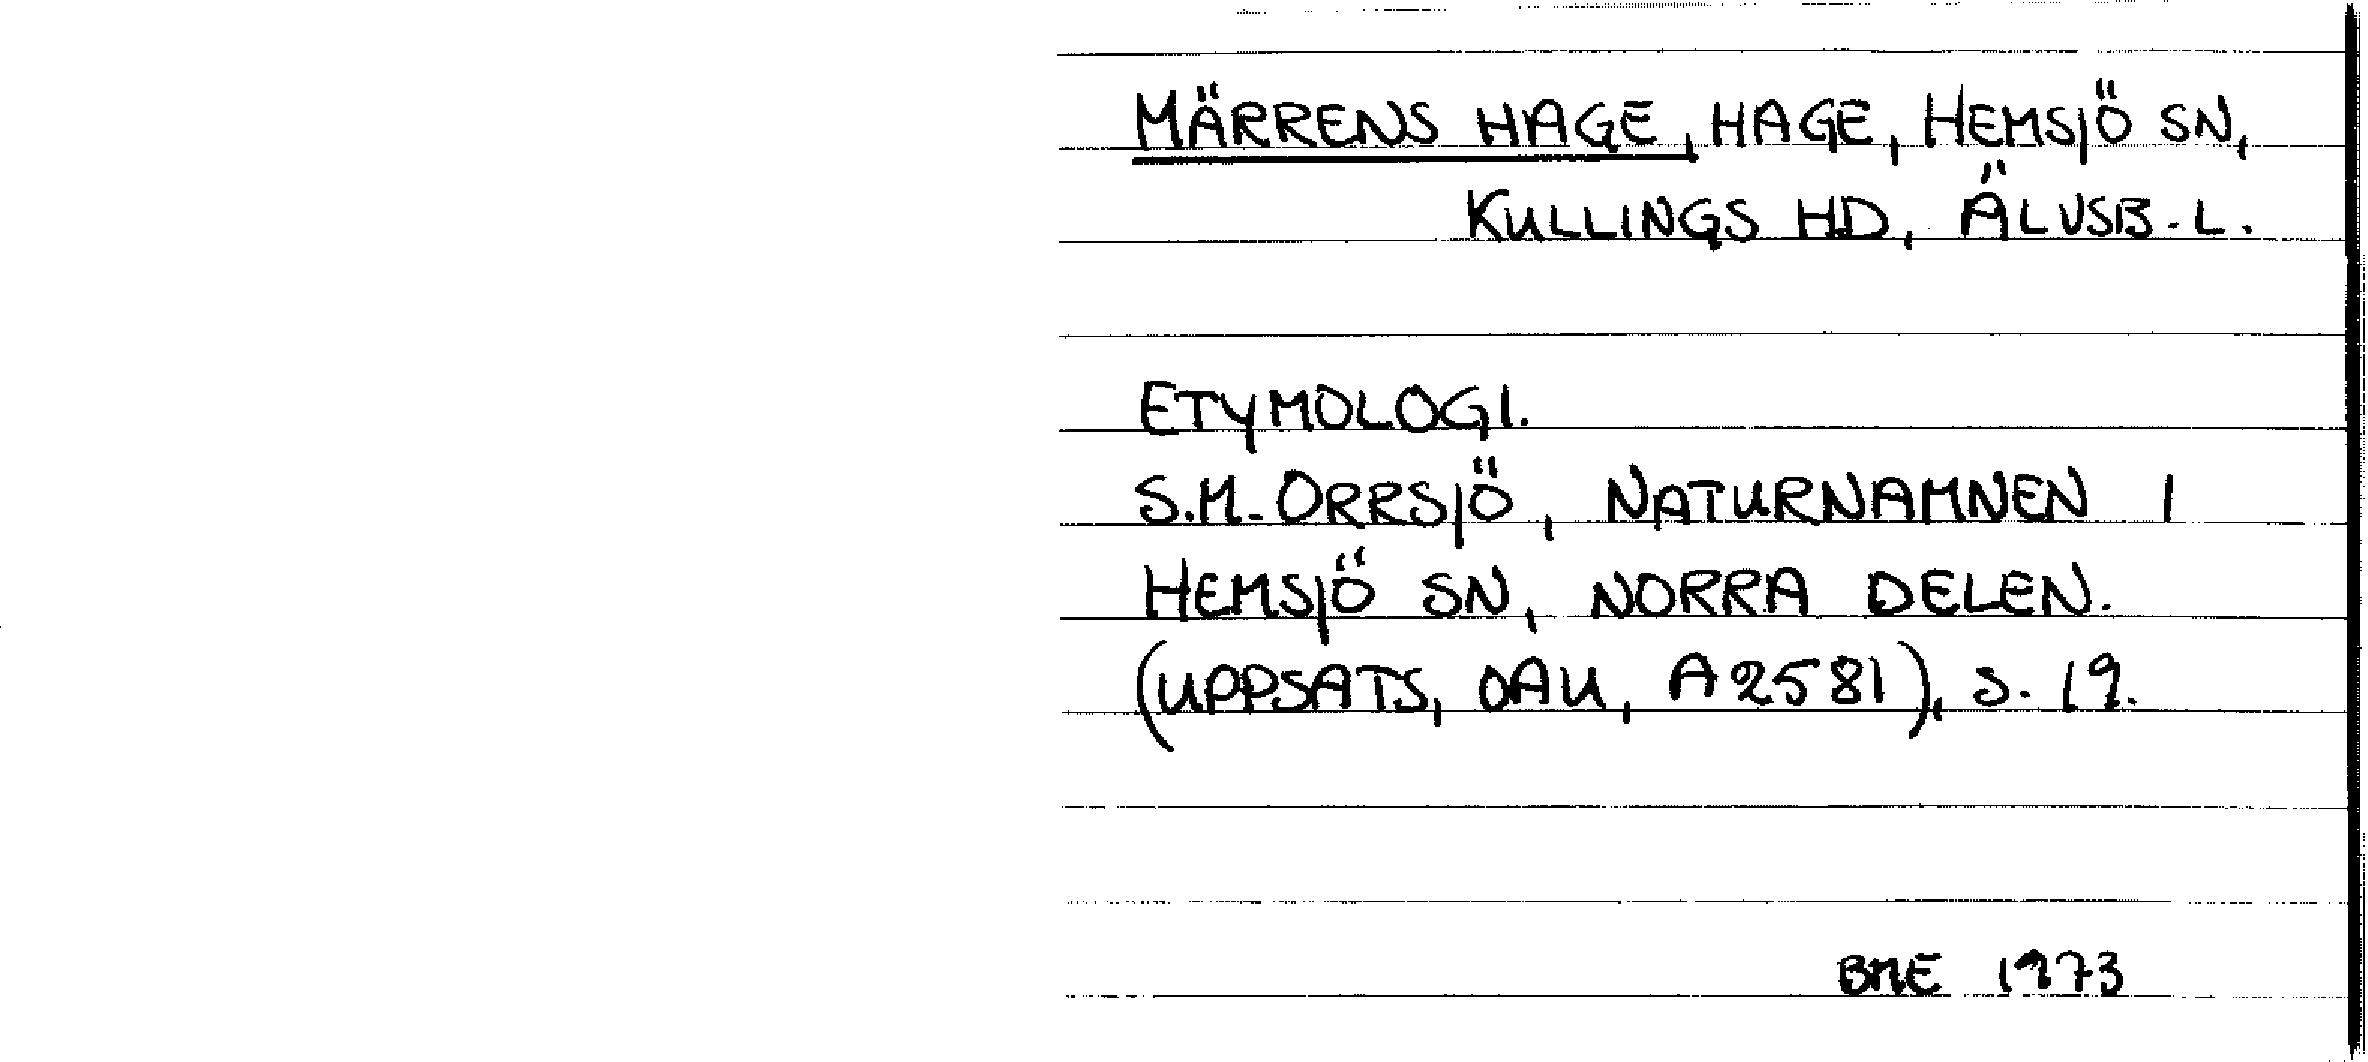 MÄRRENS HAGE, HAGE, HEMSJÖ SN,
KULLINGS HD, ÄLVSB.L.
ETYMOLOGI.
S.M. ORRSJÖ, NATURNAMNEN I
HEMSJÖ SN, NORRA DELEN.
(UPPSATS, OAU, A2581), S. 19.
BME 1973